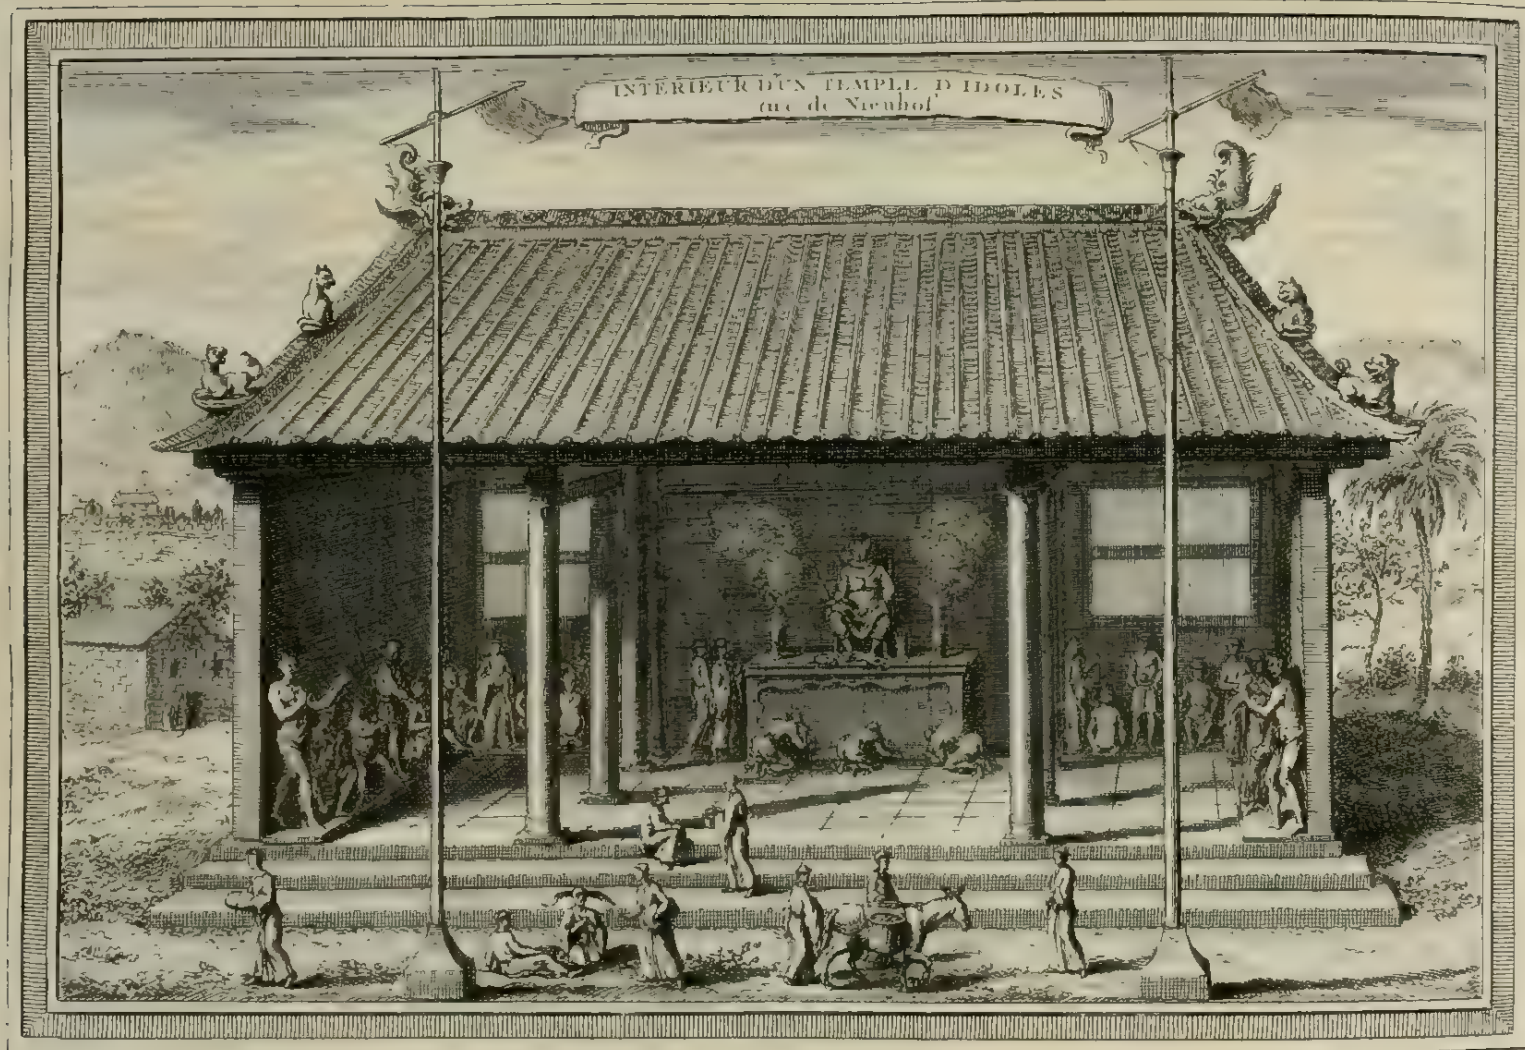 INTERIEUR D'UN TEMPLE D'IDOLES
tiré de Nieuhof